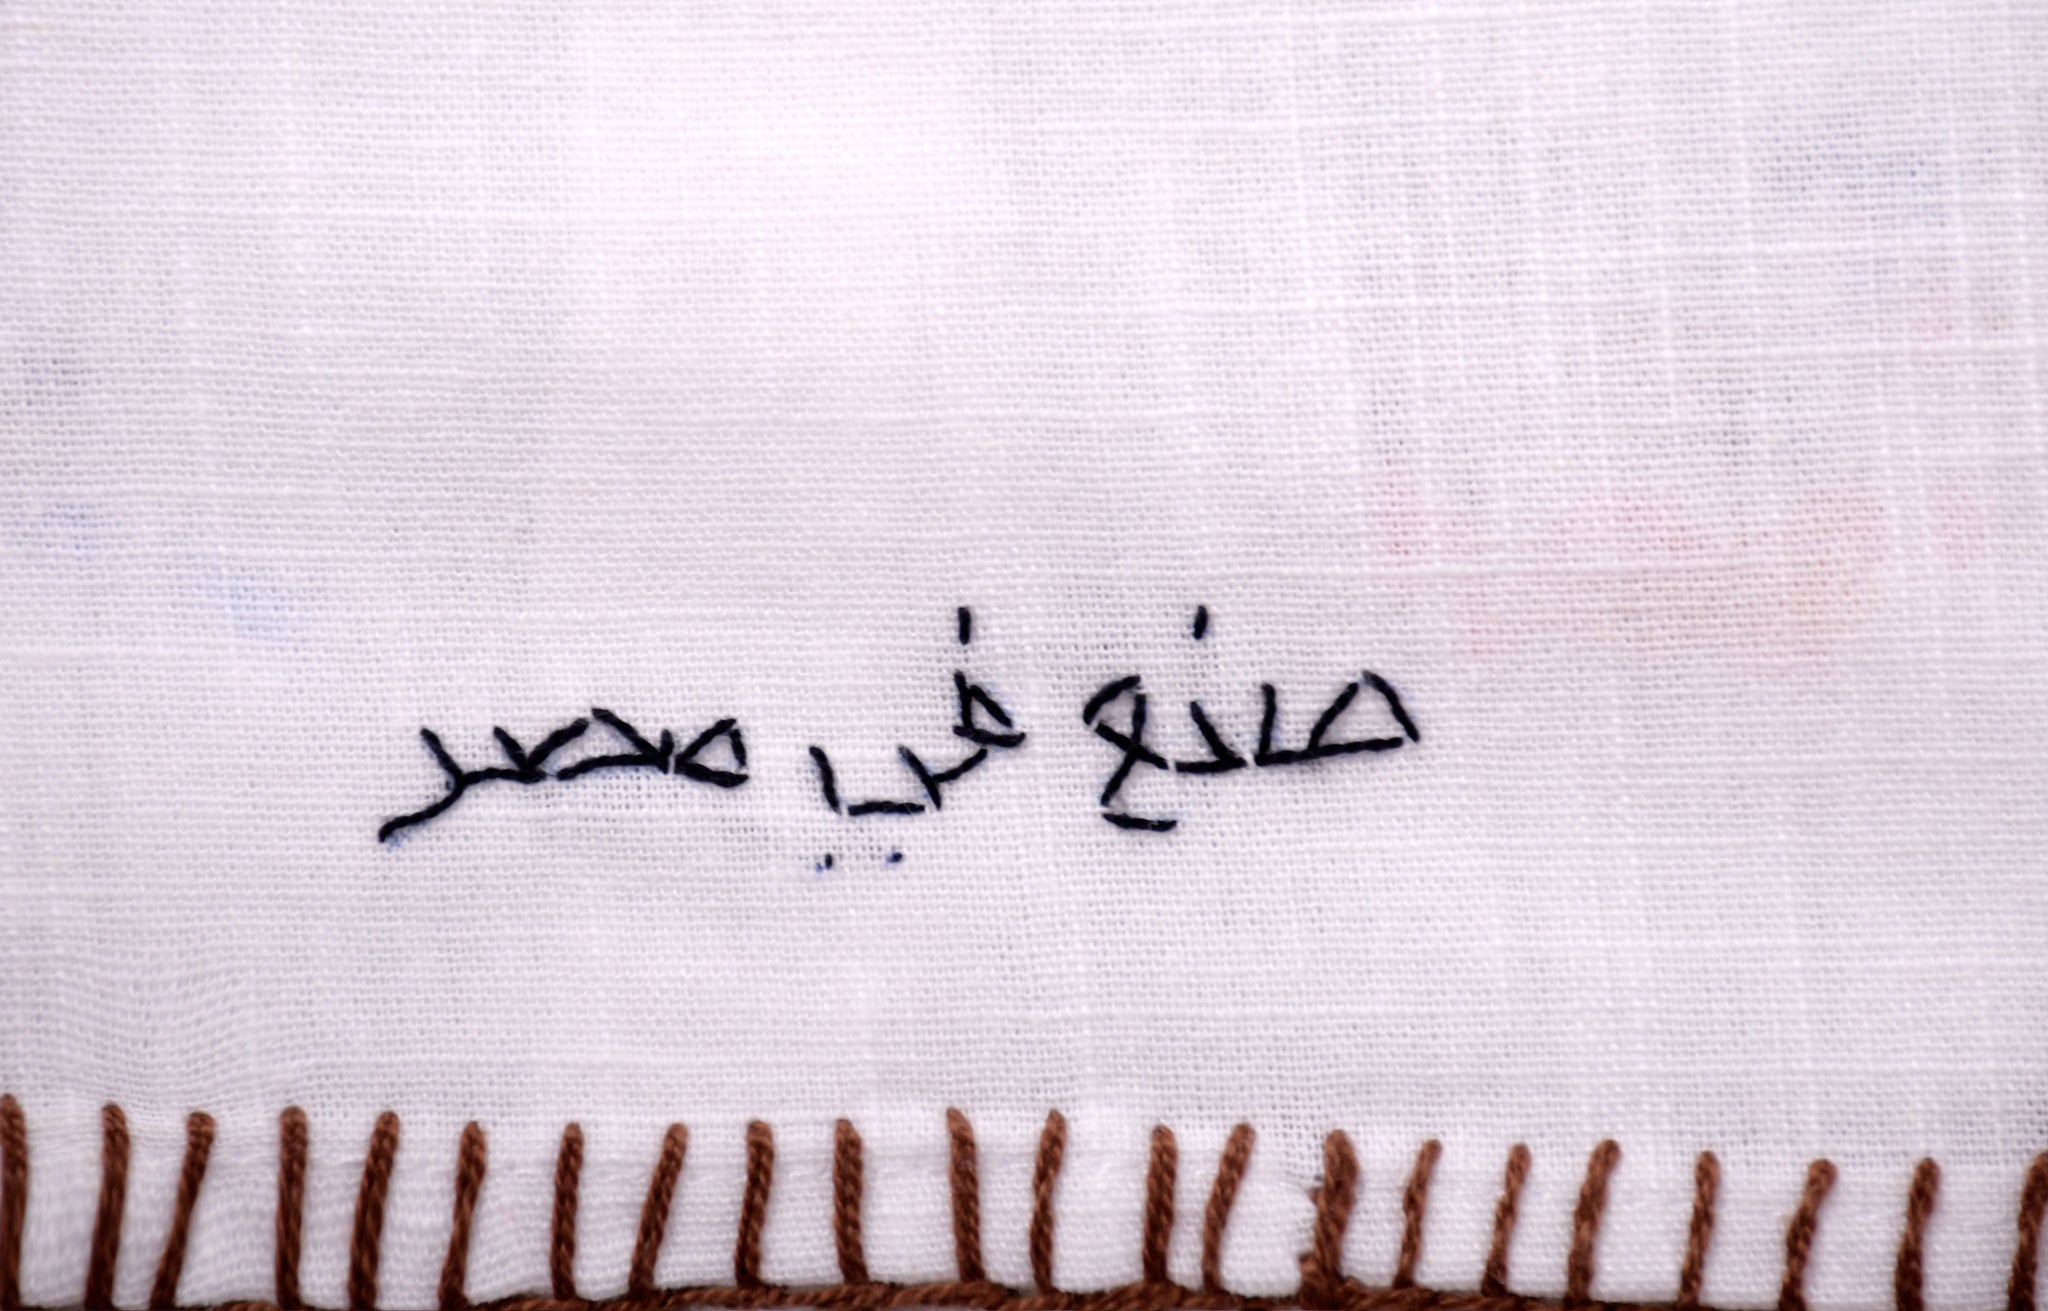 صنع في مصر